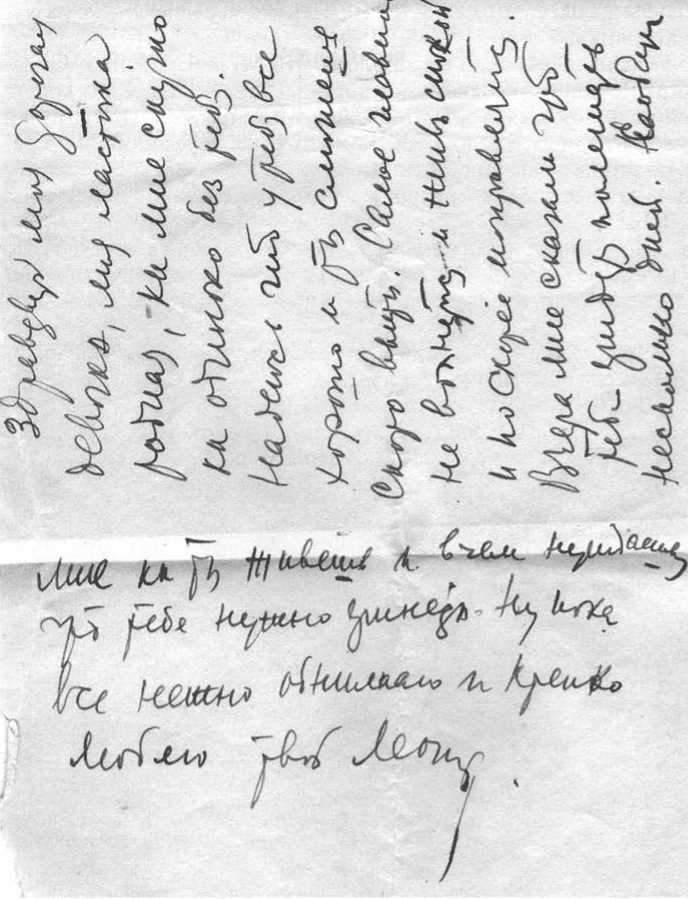 Здравствуй моя дорогая
девочка, моя ласточка
родная, ка мне скучно
ка одиноко без тебя.
Надеюсь что у тебя все
хорошо и ты сможеше
скоро выйти. Самое главное
не волнуйся и
и поскорее поправляйся.
Вчера мне сказали что
тебе придётся полежать
несколько дней.
мне ка ты живешь и в чем нуждаешся
что тебе нужно принести. Ну пока
все нежно обнимаю и крепко
люблю твой